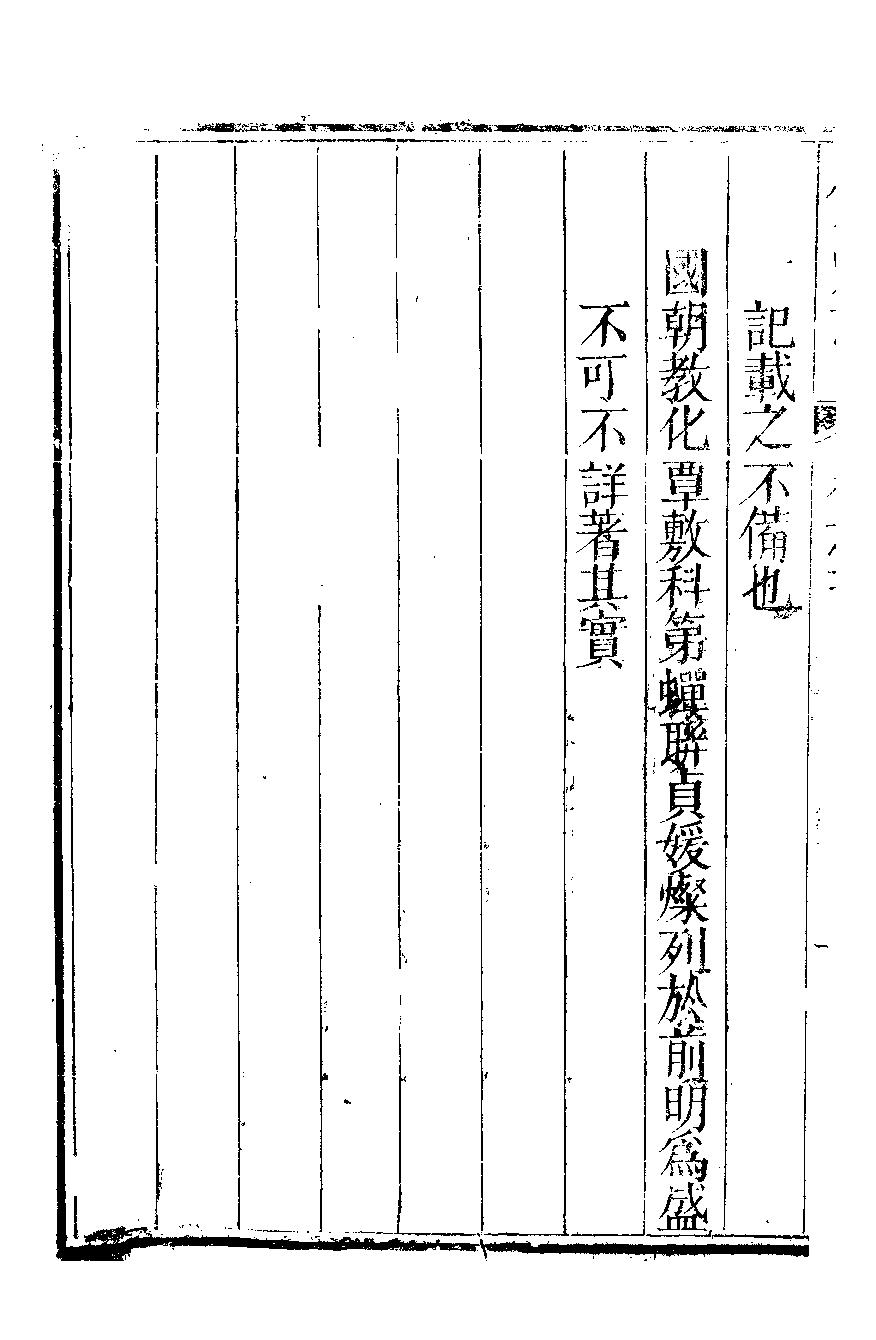 記載之不備也
國朝教化覃敷科第蟬聯貞媛燦列於前明爲盛
不可不詳著其實